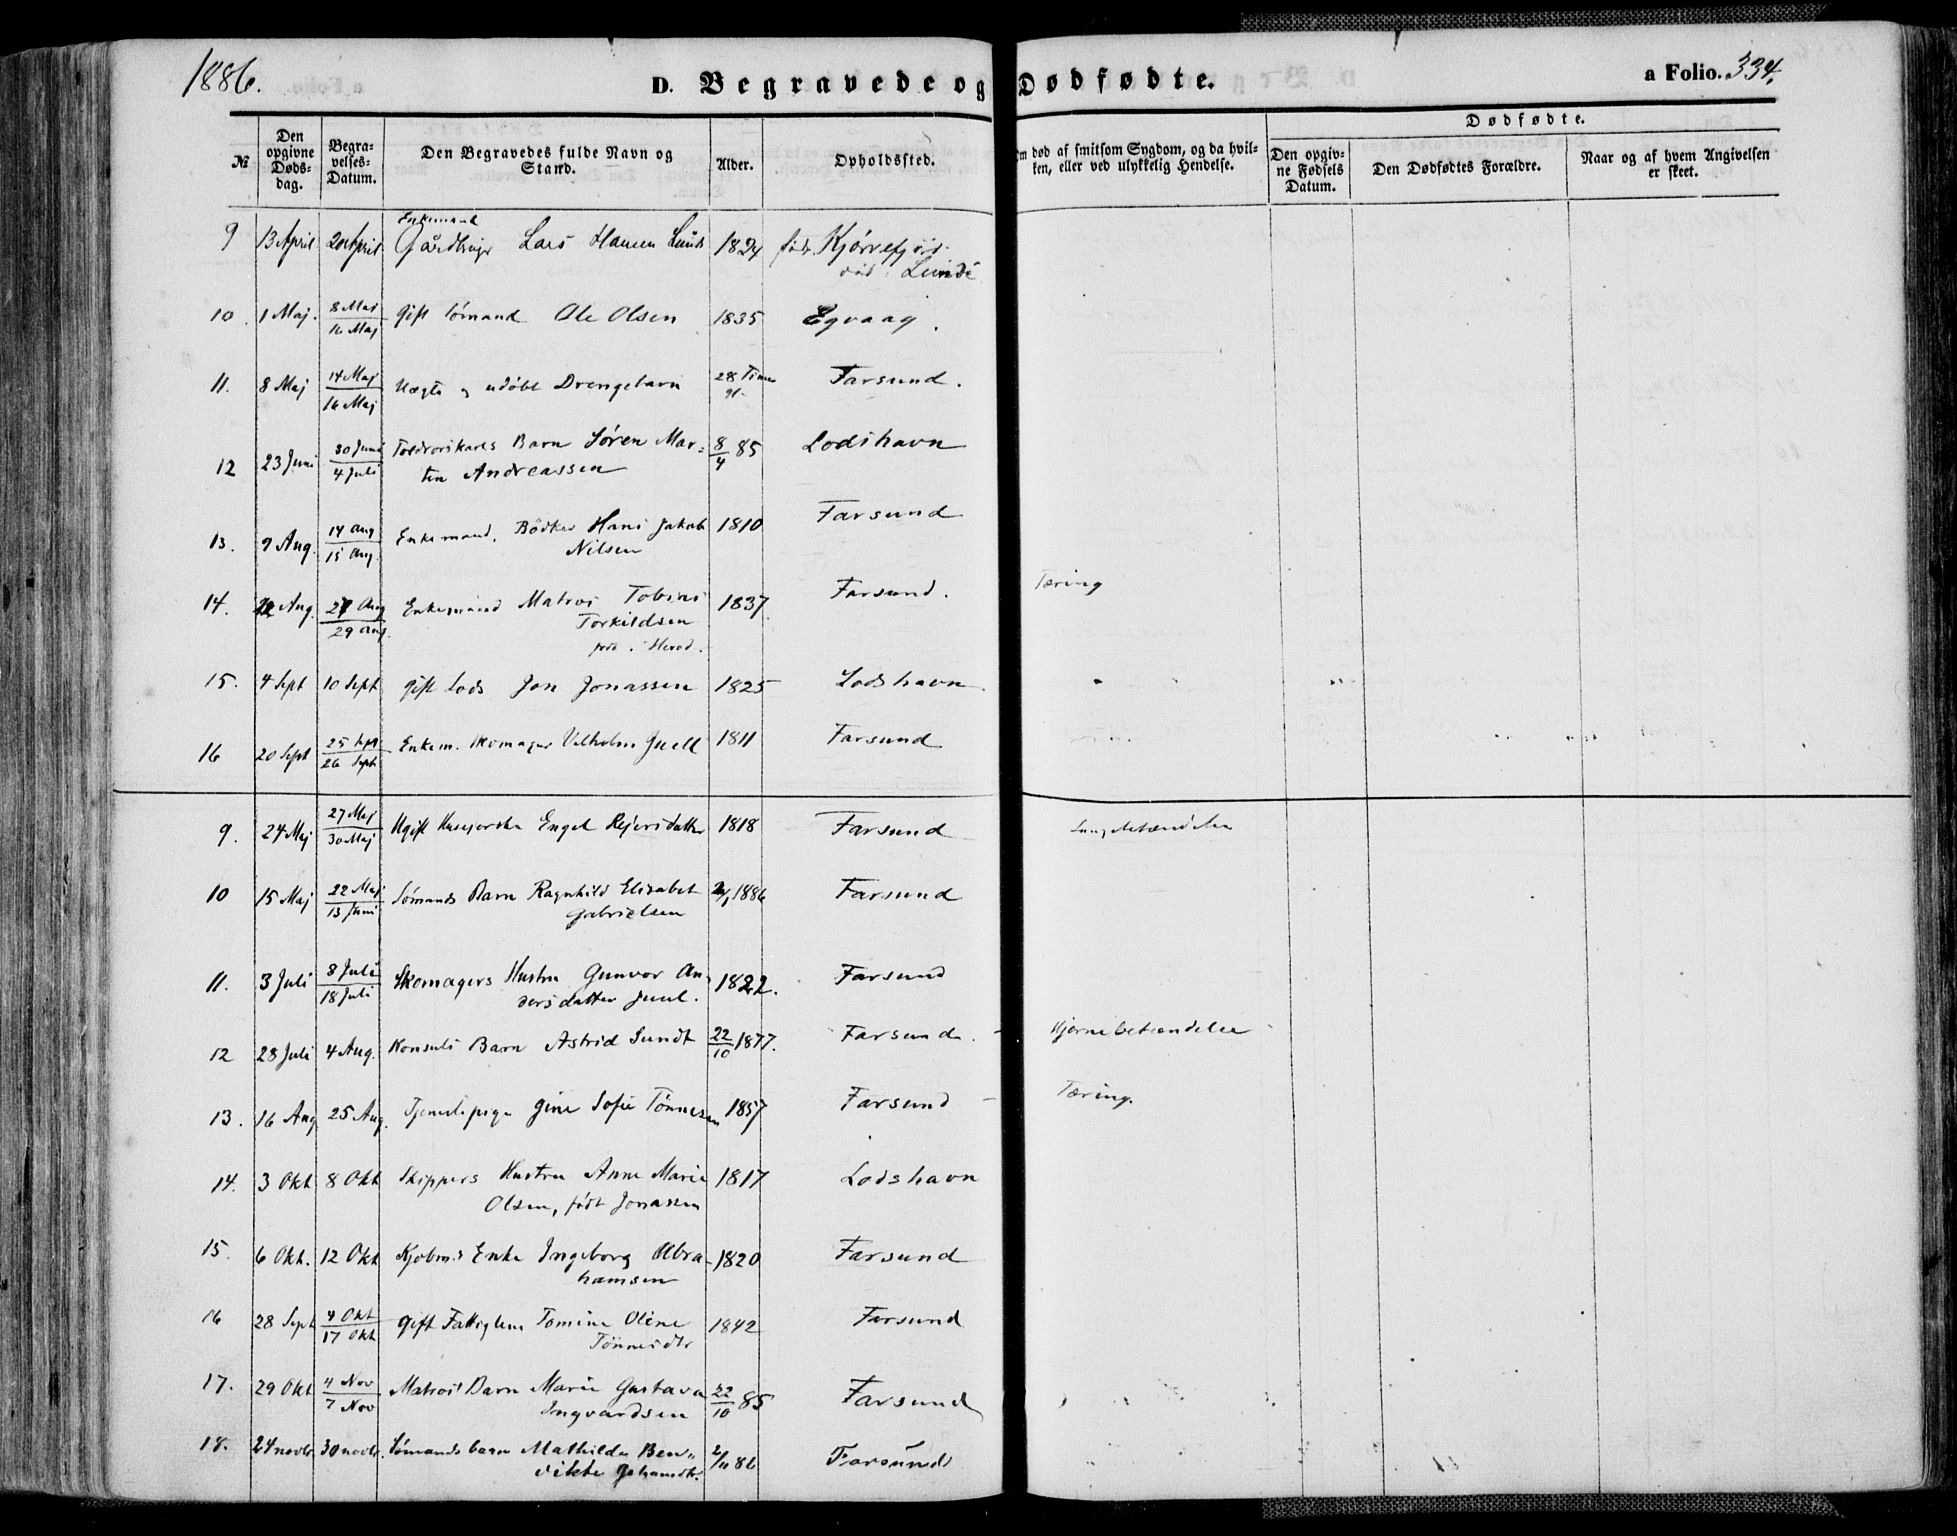 1886.
D. Begravede og Dødfødte.
a Folio. 334.
№
Den opgivne Døds-dag.
Begra-velses-Datum.
Den Begravedes fulde Navn og Stand.
Alder.
Opholdssted.
Om død af smitsom Sygdom, og da hvil-ken, eller ved ulykkelig Hendelse.
Dødfødte.
Den opgiv-ne Fødsels Datum.
Den Dødfødtes Forældre.
Naar og af hvem Angivelsen er skeet.
9 13 April 20 April Enkemand Lars Hansen 1824 Lunde
10 1 Maj. 8 Maj 16 Maj Gift Sømand Ole Olsen 1835 Egvaag.
11. 8 Maj 14 Maj 16 Maj Uægte udøbt Drengebarn 28 Timer Farsund.
12 23 Juni 30 Juni 4 Juli Barn Søren Mar-
tin Andreassen 8/4 85 Lodshavn
13. 9 Aug. 14 Aug 15 Aug. Enkemand, Bødker Hans Jakob
Nilsen 1810 Farsund
14. Aug. 27 Aug 29 Aug. Enkemand Matros Tobias
Torkildsen
Herad. 1837 Farsund. Tæring
15. 4 Sept 10 Sept Gift Lods Jon Jonassen 1825 Lodshavn
16 20 Sept 25 Sept 26 Sept Enkem. Skomager Vilhelm Juell 1811 Farsund
9. 24 Maj 27 Maj 30 Maj Ugift Engel Rejersdatter 1818 Farsund Lungebetændelse
10 15 Maj 22 Maj 13 Juni Sømands Barn Ragnhild Elisabet
Gabrielsen 1886 Farsund
11. 3 Juli 8 Juli 18 Juli Skomagers Hustru Gunvor An-
dersdatter Juul. 1822. Farsund
12 28 Juli 4 Aug. Konsuls Barn Astrid Sundt 22/10 1877. Farsund. Hjernebetændelse
13. 16 Aug 25 Aug. Tjenestepige Gine Sofie Tønnesen 1857 Farsund Tæring.
14. 3 Okt 8 Okt Skippers Hustru Anne Marie
Olsen, født Jonassen 1817 Lodshavn
15. 6 Okt. 12 Okt Kjøbm.s Enke Ingeborg Abra-
hamsen 1820 Farsund
16 28 Sept 4 Okt 17 Okt Gift Fattiglem Tomine Oline
Tønnesdtr 1842 Farsund
17. 29 Okt 4 Nov 7 Nov Matros' Barn Marie Gustava
Ingvardsen 22/10 85 Farsund
18. 24 novbr. 30 novbr. Sømands barn Mathilde Ben-
dikte Johansdtr. 2/11 86 Farsund